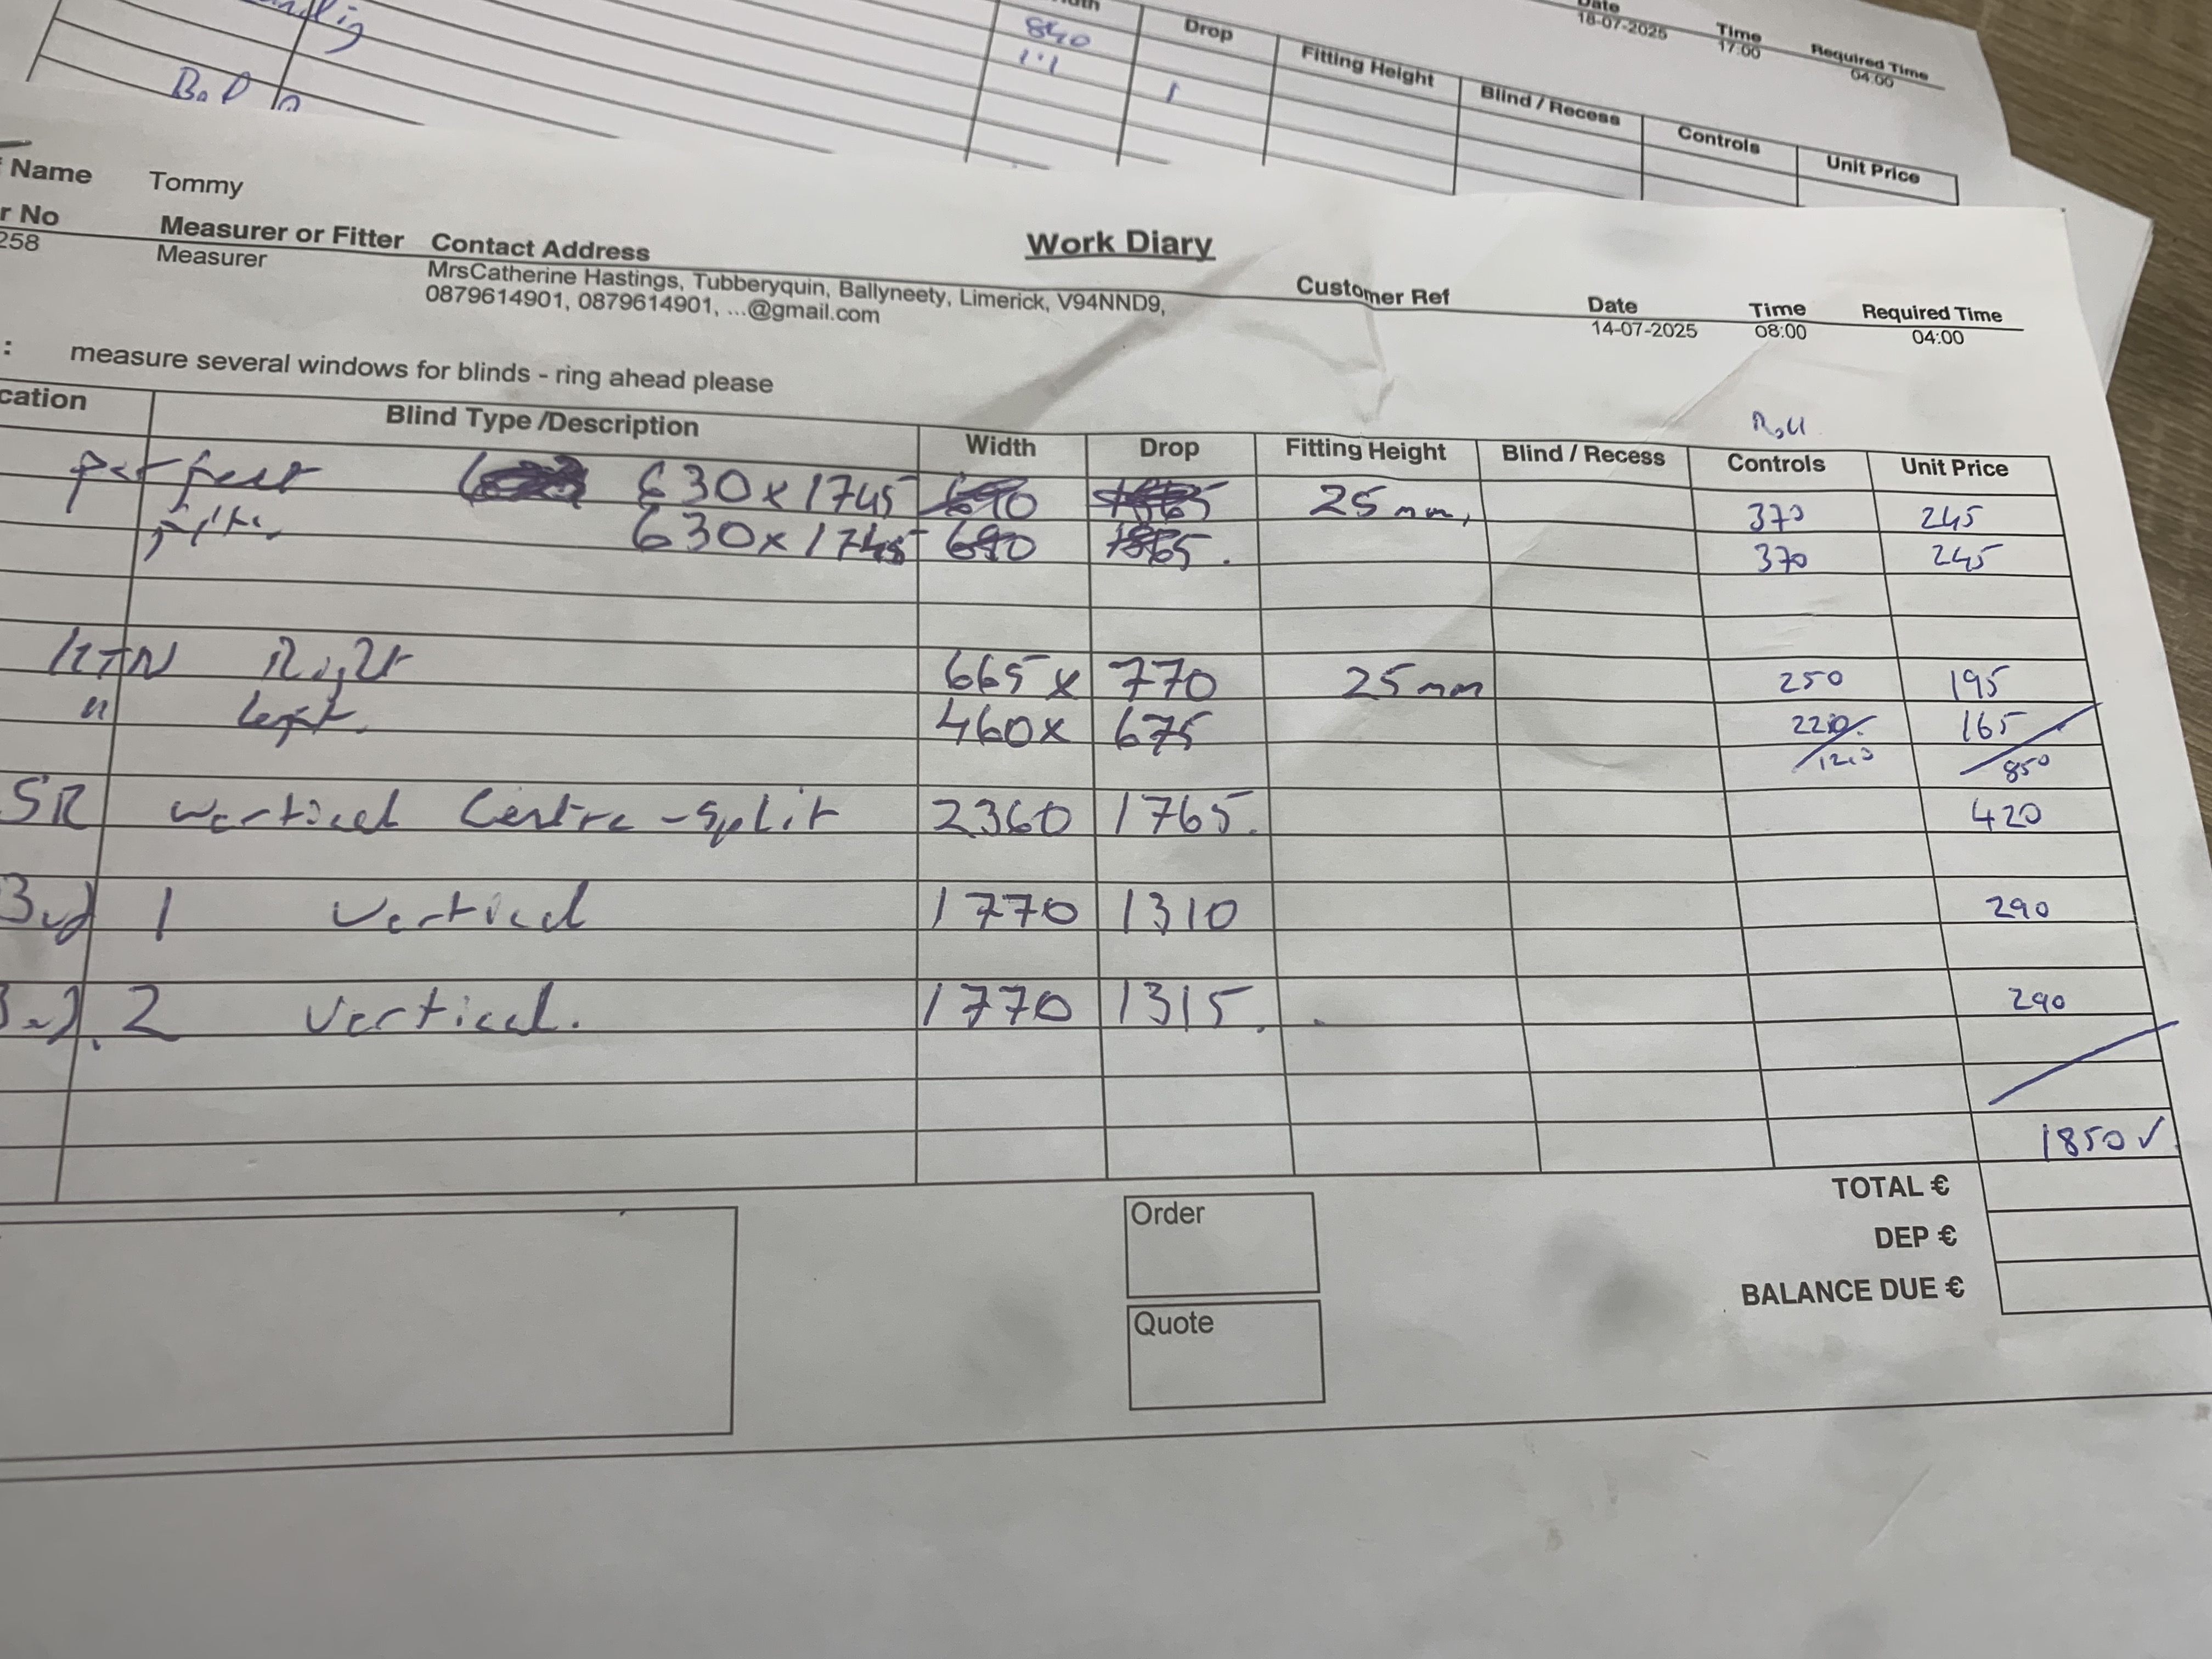 840
Drop
Fitting Height
Blind / Recess
Controls
Unit Price
Date
18-07-2025
Time
17:00
Required Time
04:00
Name Tommy
r No Measurer or Fitter Contact Address
258 Measurer
MrsCatherine Hastings, Tubberyquin, Ballyneety, Limerick, V94NND9,
0879614901, 0879614901, ...@gmail.com
Work Diary
Customer Ref Date Time Required Time
14-07-2025 08:00 04:00
: measure several windows for blinds - ring ahead please
Roll
cation Blind Type /Description Width Drop Fitting Height Blind / Recess Controls Unit Price
perfect 630 x 1745 25 mm, 370 245
630 x 1745 370 245
KTN Right 665 x 770 25 mm 250 195
" Left. 460 x 675 220 165
850
SR vertical Centre - split 2360 1765. 420
Bed 1 Vertical 1770 1310 290
Bed. 2 Vertical. 1770 1315. 290
1850 ✓
TOTAL €
DEP €
BALANCE DUE €
Order
Quote